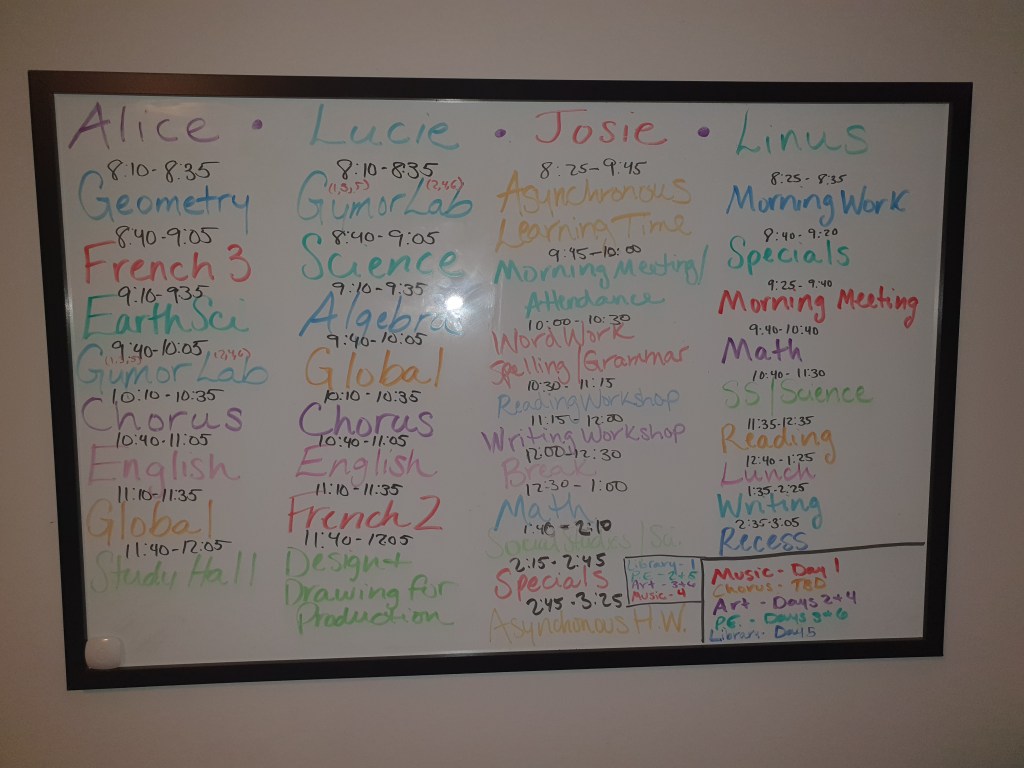 Alice • Lucie • Josie • Linus
8:10-8:35
Geometry
8:40-9:05
French 3
9:10-935
Earth Sci
9:40-10:05
(1,3,5) (2,4,6)
Gym or Lab
10:10-10:35
Chorus
10:40-11:05
English
11:10-11:35
Global
11:40-12:05
Study Hall
8:10-8:35
(1,3,5) (2,4,6)
Gym or Lab
8:40-9:05
Science
9:10-9:35
Algebra
9:40-10:05
Global
10:10-10:35
Chorus
10:40-11:05
English
11:10-11:35
French 2
11:40-1205
Design +
Drawing for
Production
8:25-9:45
Asynchronous
Learning Time
9:45-10:00
Morning Meeting/
Attendance
10:00-10:30
Word Work
Spelling/Grammar
10:30-11:15
Reading Workshop
11:15-12:00
Writing Workshop
12:00-12:30
Break
12:30-1:00
Math
1:40-2:10
Social Studies/Sci.
2:15-2:45
Specials
2:45-3:25
Asynchonous H.W.
Library-1
P.E. - 2+5
Art - 3+6
Music-4
8:25-8:35
Morning Work
8:40-9:20
Specials
9:25-9:40
Morning Meeting
9:40-10:40
Math
10:40-11:30
SS/Science
11:35-12:35
Reading
12:40-1:25
Lunch
1:35-2:25
Writing
2:35-3:05
Recess
Music - Day 1
Chorus - TBD
Art - Days 2+4
P.E. - Days 3+6
Library - Day 5